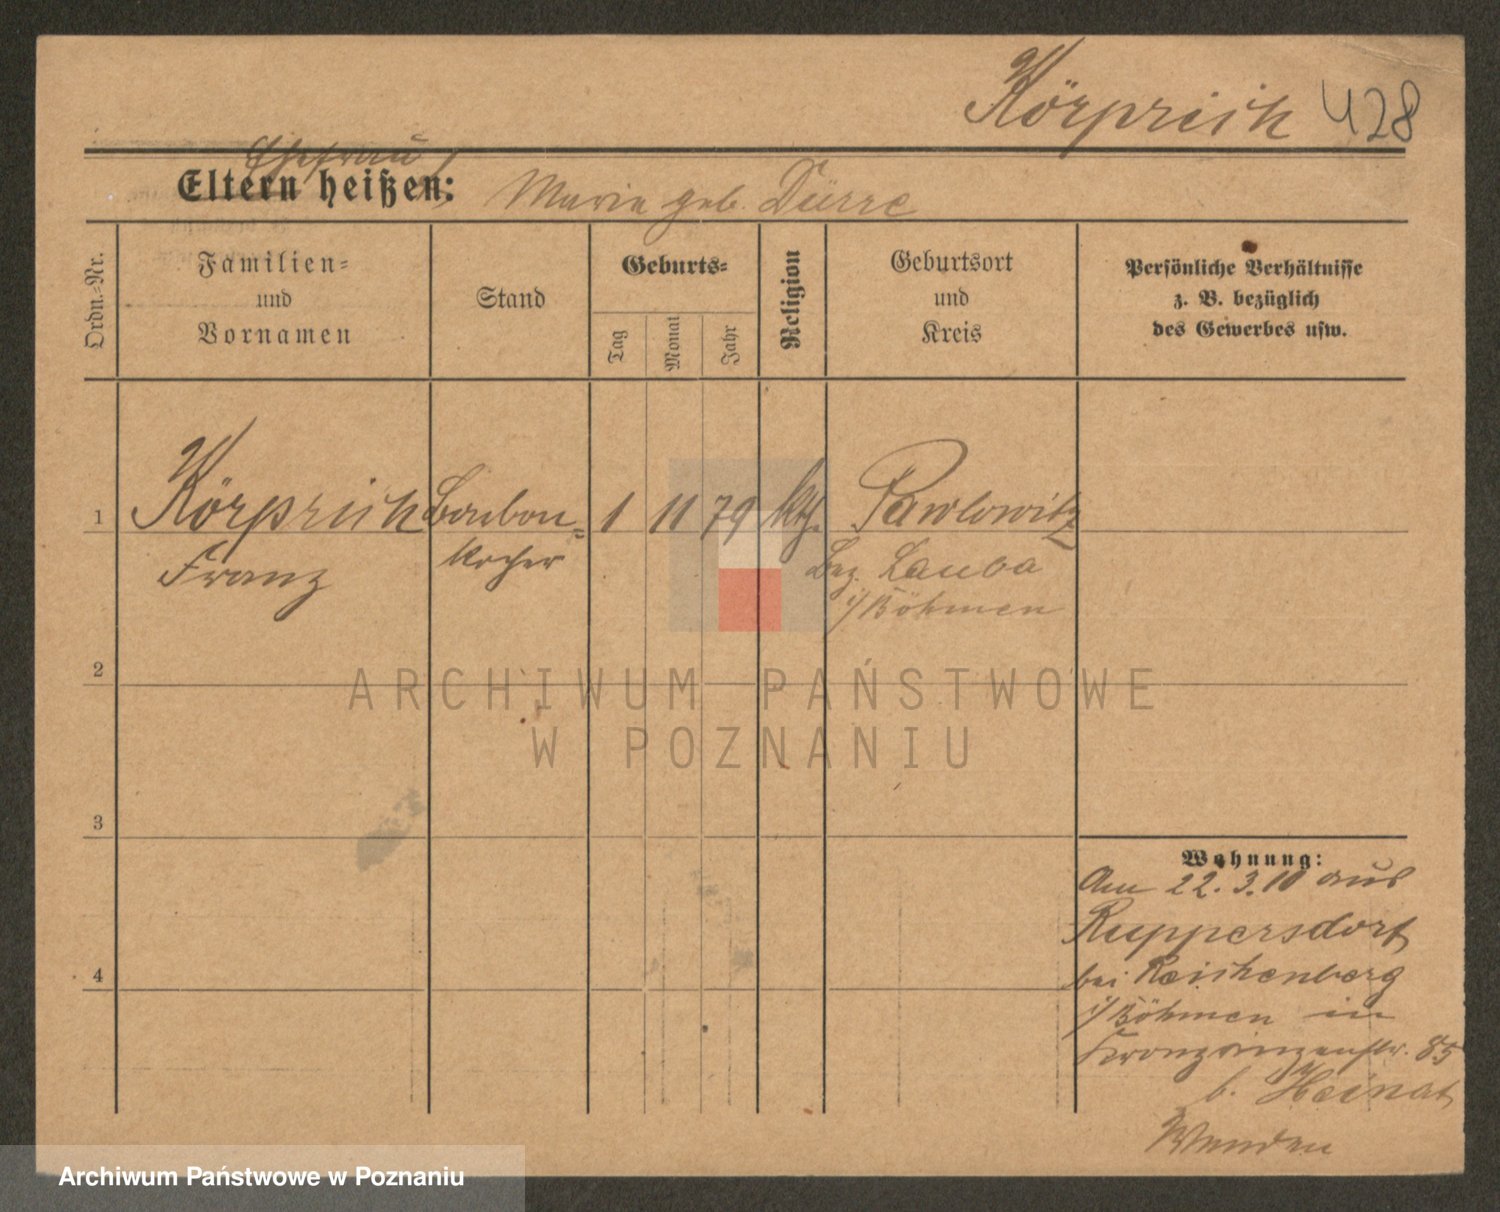 Körprich 428
Ehefrau
Eltern heißen: Maria geb. Dürre
Ordn.-Nr.
Familien-
und
Vornamen
Stand
Geburts-
Tag
Monat
Jahr
Religion
Geburtsort
und
Kreis
Persönliche Verhältnisse
z. B. bezüglich
des Gewerbes usw.
1 Körprich Bonbon- 1 11 79 kth. Pawlowitz
Franz kocher Bez. Dauba
i/Böhmen
2
ARCHIWUM PAŃSTWOWE
W POZNANIU
3
Wohnung:
Am 22.3.10 aus
Ruppersdorf
bei Reichenberg
i/Böhmen in
Kronprinzenstr. 85
b. Heinat
4
Archiwum Państwowe w Poznaniu